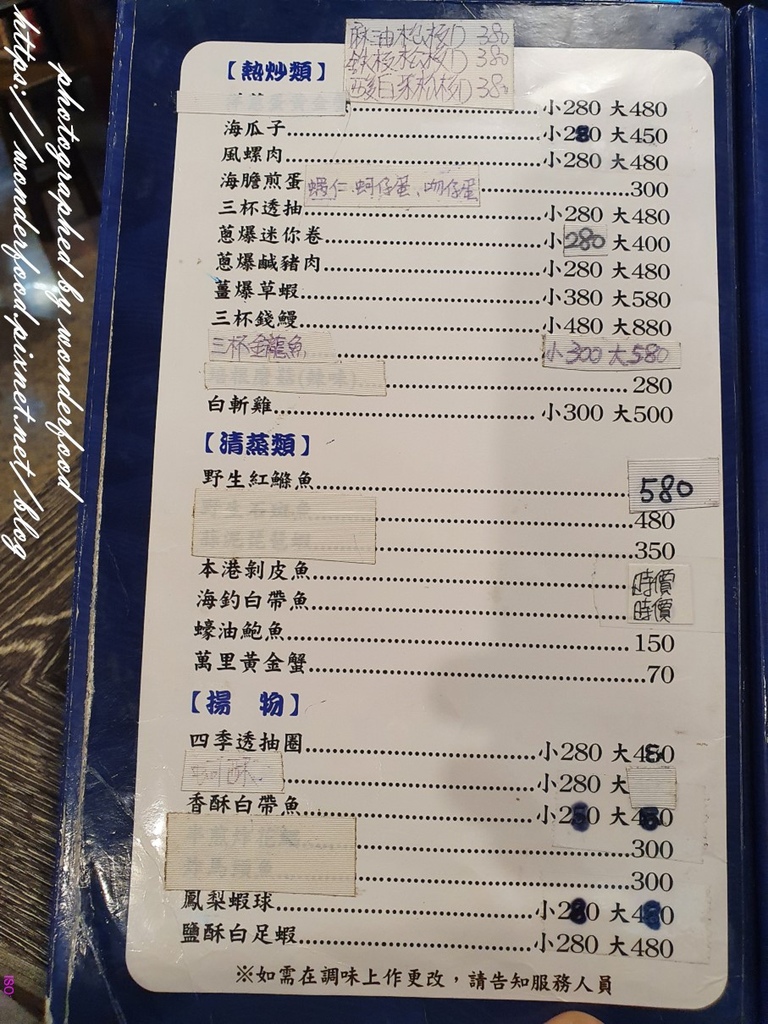 麻油松板肉 380
鐵板松板肉 380
酸白菜松板肉 380
【熱炒類】
小280 大480
海瓜子 小280 大450
風螺肉 小280 大480
海膽煎蛋 蝦仁、蚵仔蛋、吻仔蛋 300
三杯透抽 小280 大480
蔥爆迷你卷 小280 大400
蔥爆鹹豬肉 小280 大480
薑爆草蝦 小380 大580
三杯錢鰻 小480 大880
三杯金龍魚 小300 大580
280
白斬雞 小300 大500
【清蒸類】
野生紅鰷魚 580
480
350
本港剝皮魚 時價
海釣白帶魚 時價
蠔油鮑魚 150
萬里黃金蟹 70
【揚 物】
四季透抽圈 小280 大480
蚵酥 小280 大
香酥白帶魚 小280 大480
300
300
鳳梨蝦球 小280 大480
鹽酥白足蝦 小280 大480
※如需在調味上作更改，請告知服務人員
photographed by wonderfood
https://wonderfood.pixnet.net/blog
ISO